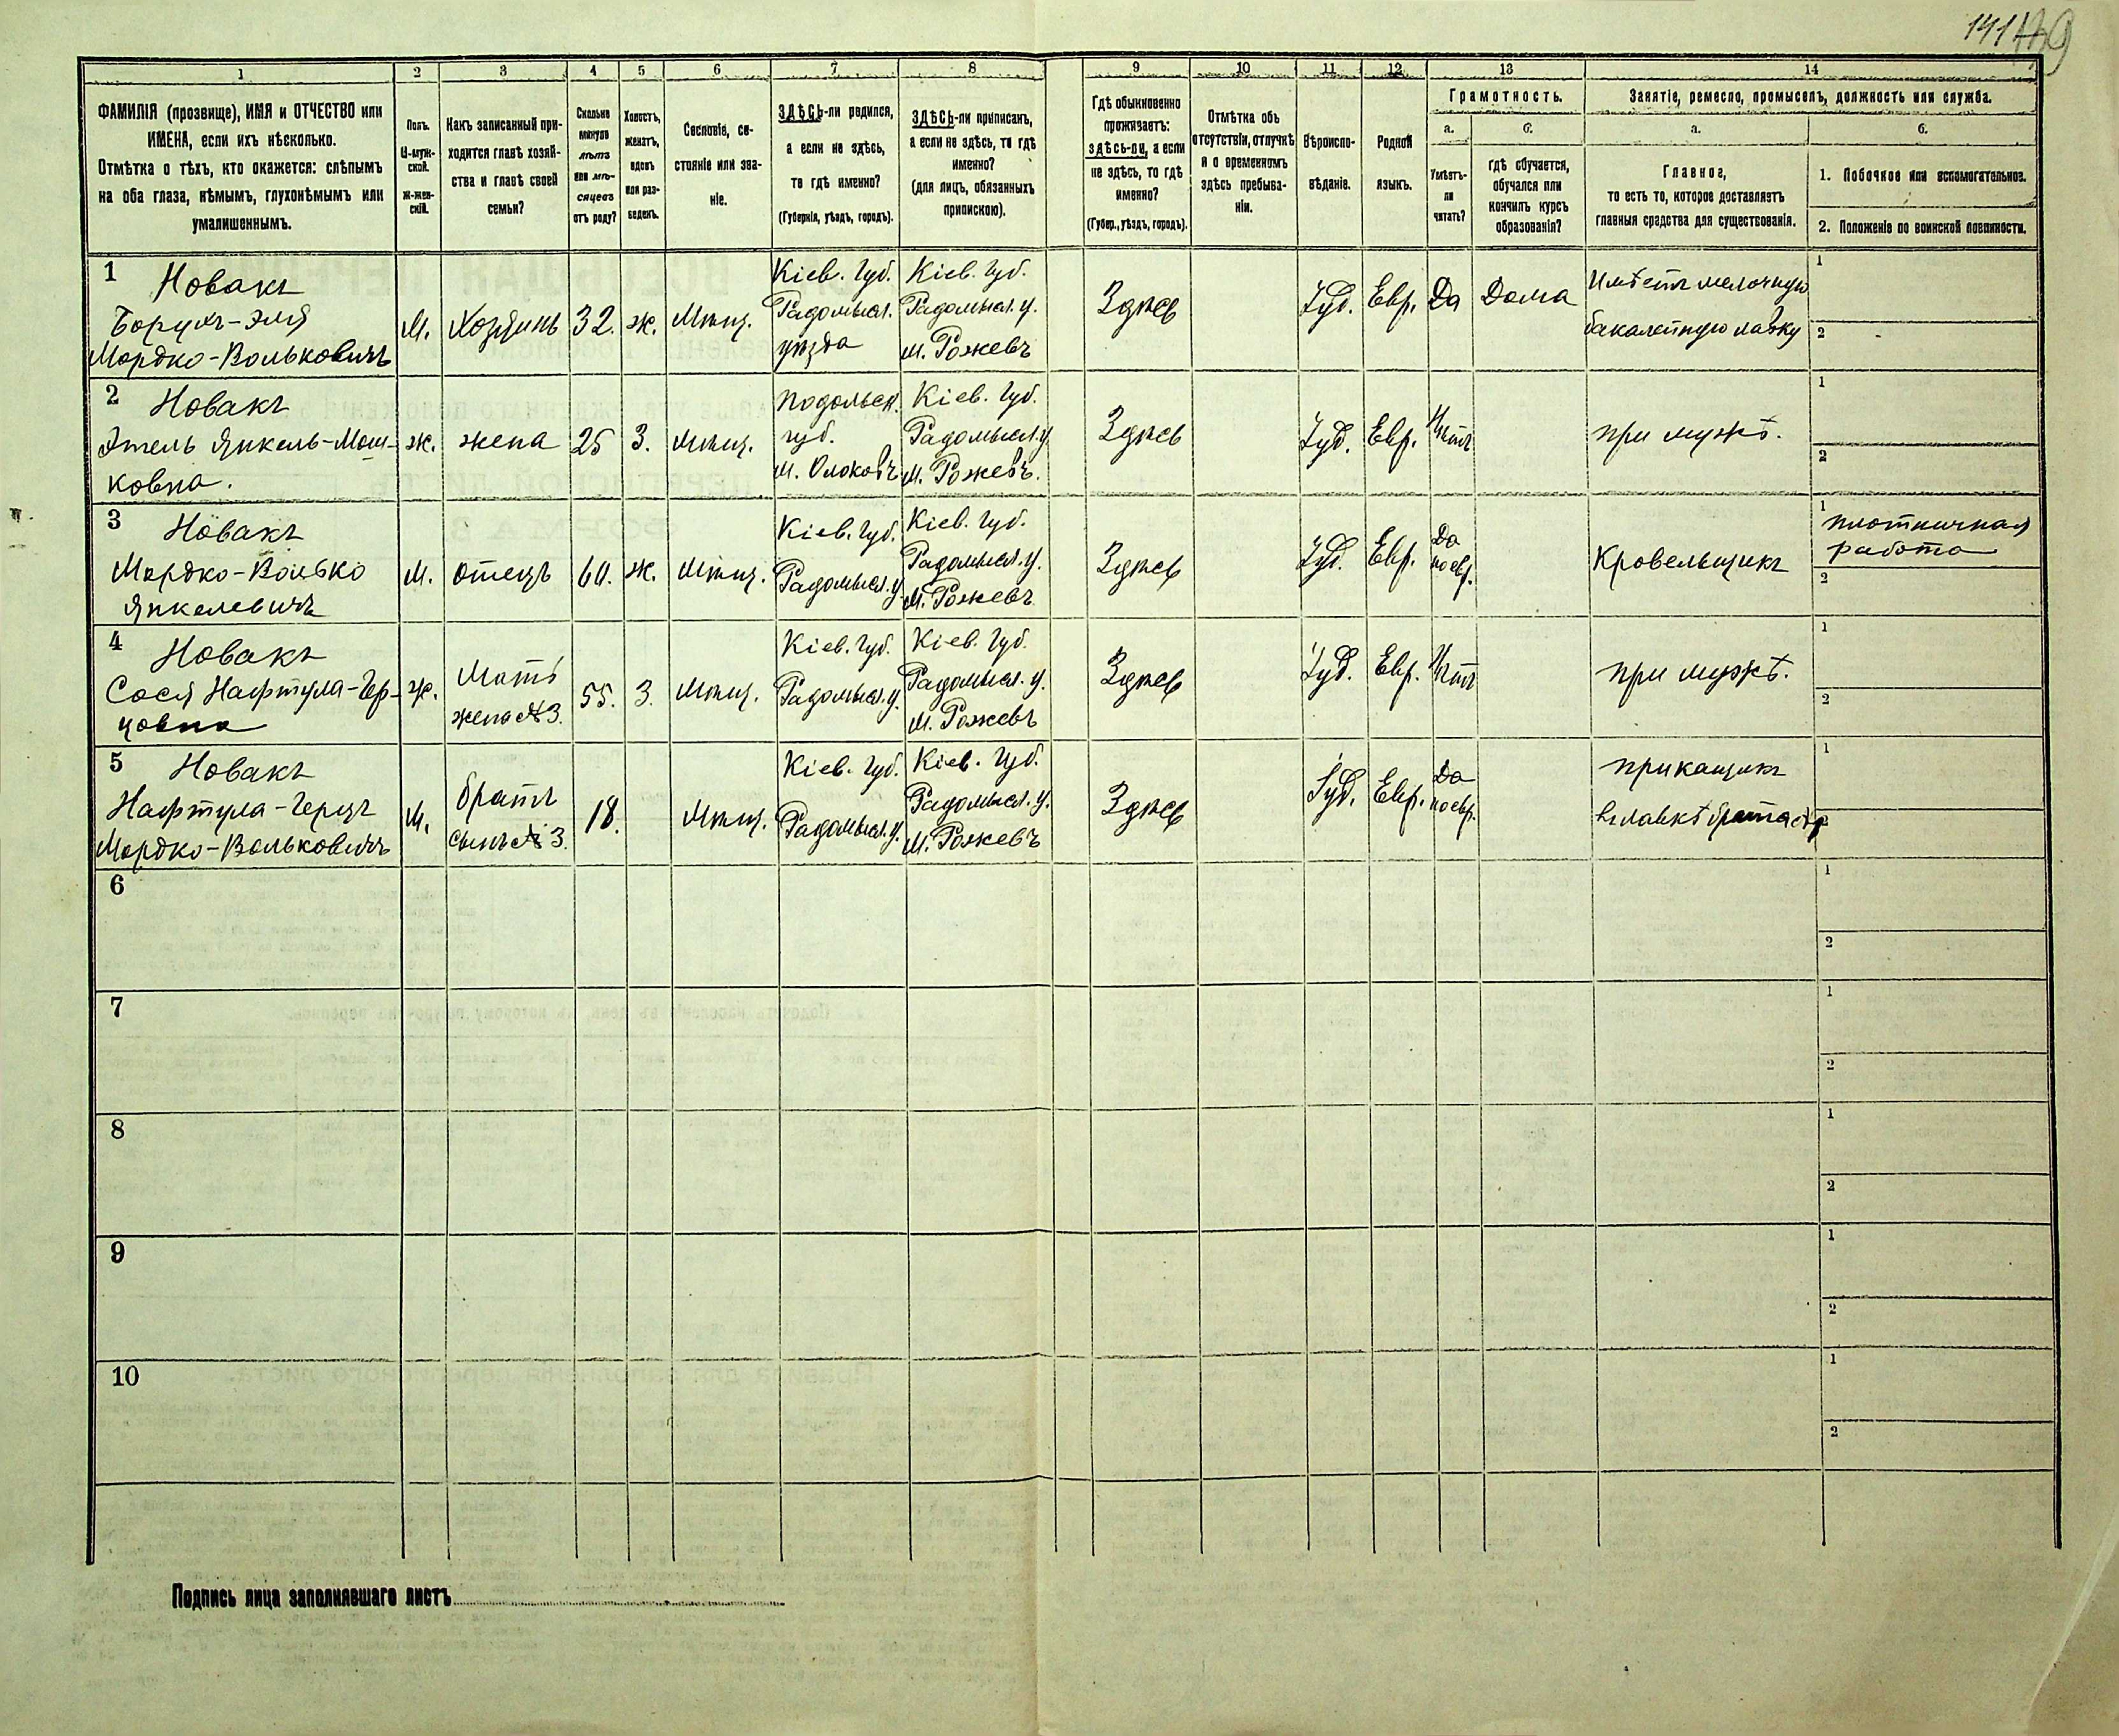 141
1 2 3 4 5 6 7 8 9 10 11 12 13 14
ФАМИЛІЯ (прозвище), ИМЯ и ОТЧЕСТВО или
ИМЕНА, если ихъ нѣсколько.
Отмѣтка о тѣхъ, кто окажется: слѣпымъ
на оба глаза, нѣмымъ, глухонѣмымъ или
умалишеннымъ.
Полъ.
М-муж-
ской.
Ж-жен-
скій.
Какъ записанный при-
ходится главѣ хозяй-
ства и главѣ своей
семьи?
Сколько
минуло
лѣтъ
или мѣ-
сяцевъ
отъ роду?
Холостъ,
женатъ,
вдовъ
или раз-
веденъ.
Сословіе, со-
стояніе или зва-
ніе.
ЗДѢСЬ-ли родился,
а если не здѣсь,
то гдѣ именно?
(Губернія, уѣздъ, городъ).
ЗДѢСЬ-ли приписанъ,
а если не здѣсь, то гдѣ
именно?
(для лицъ, обязанныхъ
припискою).
Гдѣ обыкновенно
проживаетъ:
здѣсь-ли, а если
не здѣсь, то гдѣ
именно?
(Губер., уѣздъ, городъ).
Отмѣтка объ
отсутствіи, отлучкѣ
и о временномъ
здѣсь пребыва-
ніи.
Вѣроиспо-
вѣданіе.
Родной
языкъ.
Грамотность.
а.
Умѣетъ-
ли
читать?
б.
гдѣ обучается,
обучался или
кончилъ курсъ
образованія?
Занятіе, ремесло, промыселъ, должность или служба.
а.
Главное,
то есть то, которое доставляетъ
главныя средства для существованія.
б.
1. Побочное или вспомогательное.
2. Положеніе по воинской повинности.
1 Новакъ
Борухъ-Эля
Мордко-Вольковичъ
М.
Хозяинъ
32.
ж.
Мѣщ.
Кіев. Губ.
Радомысл.
уѣзда
Кіев. Губ.
Радомысл. у.
м. Рожевъ
Здѣсь
Іуд.
Евр.
Да
Дома
Имѣетъ мелочную
бакалейную лавку
1
2
2 Новакъ
Этель Янкель-Мош-
ковна.
ж.
жена
25
З.
Мѣщ.
Подольск.
губ.
Кіев. Губ.
Радомысл. у
м. Рожевъ.
Здѣсь
Іуд.
Евр.
Нѣтъ
при мужѣ.
1
2
3 Новакъ
Мордко-Волько
Янкелевичъ
М.
отецъ
60.
ж.
Мѣщ.
Кіев. Губ.
Радомысл. у.
Кіев. Губ.
Радомысл. у.
м. Рожевъ
Здѣсь
Іуд.
Евр.
Да
по евр.
Кровельщикъ
1
плотничная
работа
2
4 Новакъ
Сося Нафтула-Гер-
цовна
Ж.
Мать
жена № 3.
55.
З.
Мѣщ.
Кіев. Губ.
Радомысл. у.
Кіев. Губ.
Радомысл. у.
м. Рожевъ
Здѣсь
Іуд.
Евр.
Нѣтъ
при мужѣ.
1
2
5 Новакъ
Нафтула-Герцъ
Мордко-Вольковичъ
М.
братъ
сынъ № 3.
18.
Мѣщ.
Кіев. Губ.
Радомысл. у.
Кіев. Губ.
Радомысл. у.
м. Рожевъ
Здѣсь
Іуд.
Евр.
Да
по евр.
прикащикъ
въ лавкѣ брата
1
2
6
1
2
7
1
2
8
1
2
9
1
2
10
1
2
Подпись лица заполнявшаго листъ